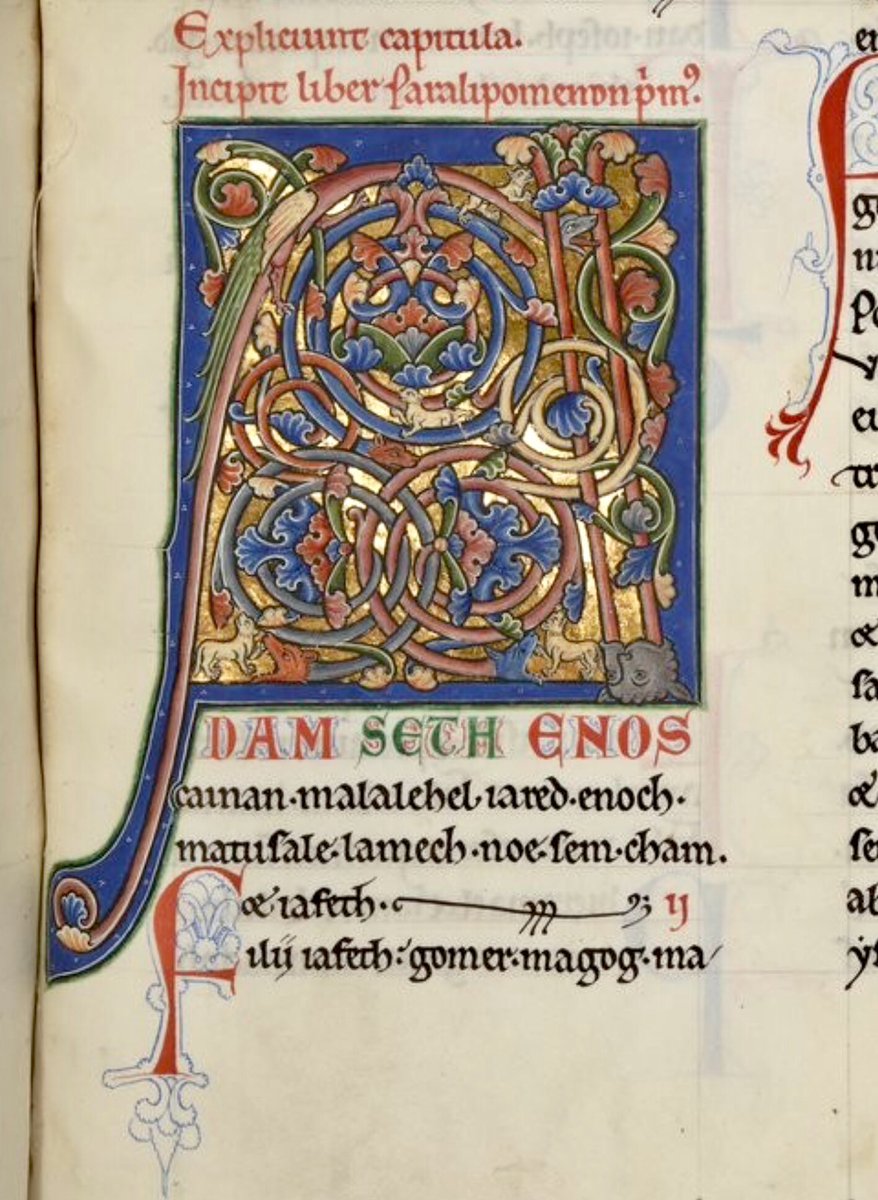 Expliciunt capitula.
Incipit liber Paralipomenon pͥmꝰ.
ADAM SETH ENOS
cainan·malalehel·iared·enoch·
matusale·lamech·noe·sem·cham.
⁊ iafeth· ij
Filij iafeth:gomer·magog·ma